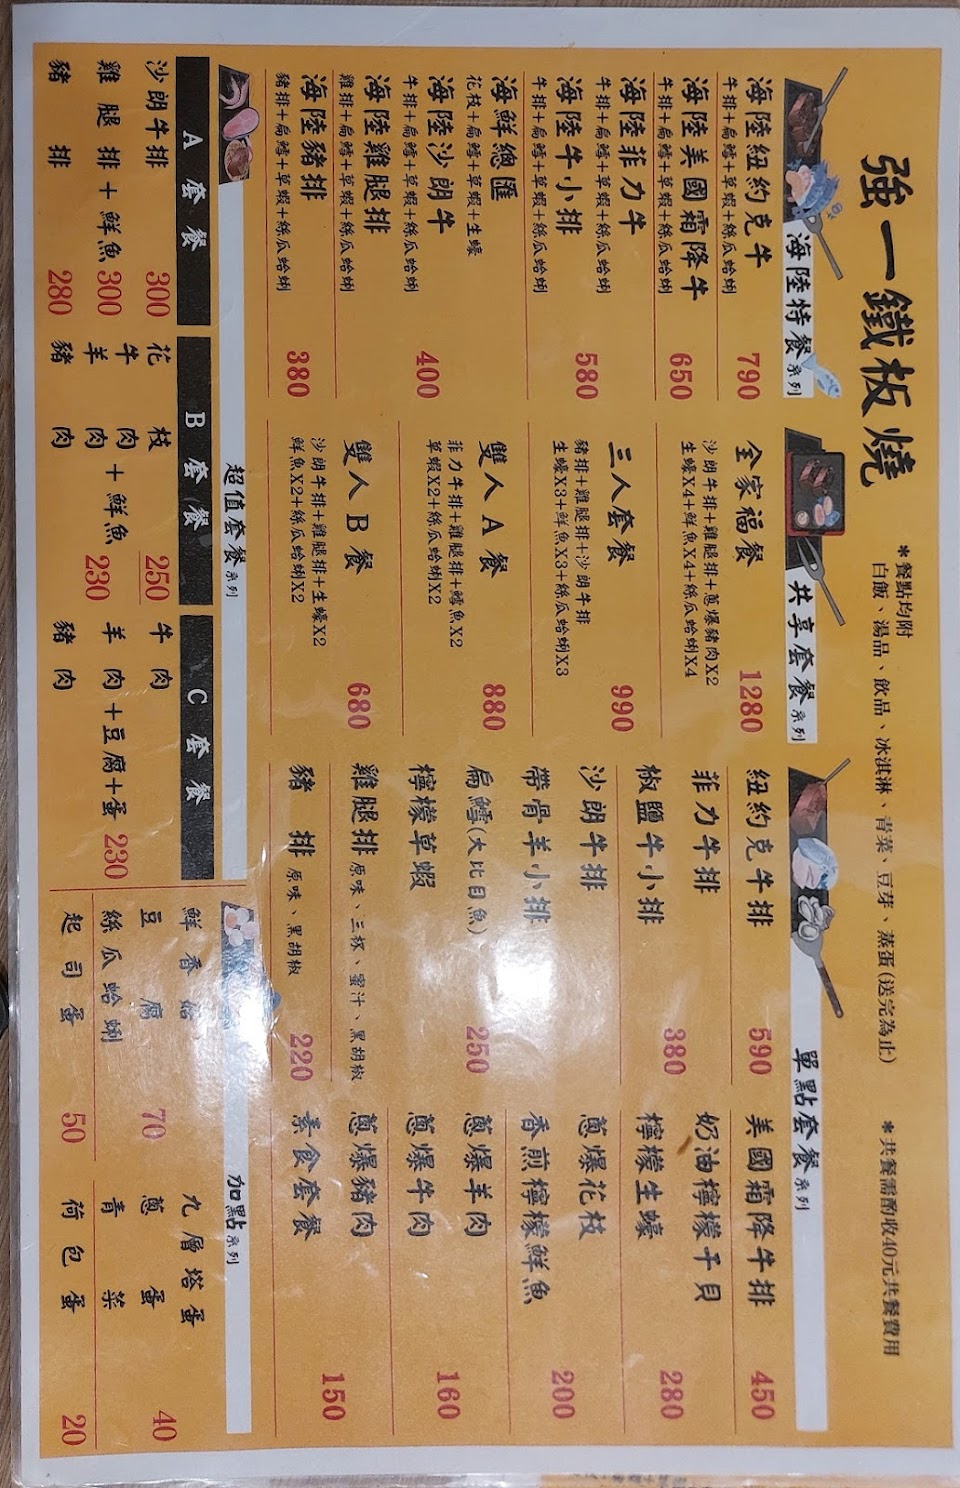 強一鐵板燒
*餐點均附
白飯、湯品、飲品、冰淇淋、青菜、豆芽、蒸蛋(送完為止)
*共餐需酌收40元共餐費用
海陸特餐系列
海陸紐約克牛
牛排+扁鱈+草蝦+絲瓜蛤蜊
790
海陸美國霜降牛
牛排+扁鱈+草蝦+絲瓜蛤蜊
650
海陸菲力牛
牛排+扁鱈+草蝦+絲瓜蛤蜊
海陸牛小排
牛排+扁鱈+草蝦+絲瓜蛤蜊
580
海鮮總匯
花枝+扁鱈+草蝦+生蠔
海陸沙朗牛
牛排+扁鱈+草蝦+絲瓜蛤蜊
400
海陸雞腿排
雞排+扁鱈+草蝦+絲瓜蛤蜊
海陸豬排
豬排+扁鱈+草蝦+絲瓜蛤蜊
380
共享套餐系列
全家福餐
沙朗牛排+雞腿排+蔥爆豬肉X2
生蠔X4+鮮魚X4+絲瓜蛤蜊X4
1280
三人套餐
豬排+雞腿排+沙朗牛排
生蠔X3+鮮魚X3+絲瓜蛤蜊X3
990
雙人A餐
菲力牛排+雞腿排+鱈魚X2
草蝦X2+絲瓜蛤蜊X2
880
雙人B餐
沙朗牛排+雞腿排+生蠔X2
鮮魚X2+絲瓜蛤蜊X2
680
單點套餐系列
紐約克牛排 590
菲力牛排
椒鹽牛小排 380
沙朗牛排
帶骨羊小排
扁鱈(大比目魚) 250
檸檬草蝦
雞腿排 原味、三杯、蜜汁、黑胡椒
豬排 原味、黑胡椒 220
美國霜降牛排 450
奶油檸檬干貝
檸檬生蠔 280
蔥爆花枝
香煎檸檬鮮魚 200
蔥爆羊肉
蔥爆牛肉 160
蔥爆豬肉
素食套餐 150
超值套餐系列
A 套餐
沙朗牛排 300
雞腿排+鮮魚 300
豬排 280
B 套餐
花枝 250
牛肉
羊肉+鮮魚 230
豬肉
C 套餐
牛肉
羊肉+豆腐+蛋 230
豬肉
加點系列
鮮香
豆腐 70
絲瓜蛤蜊
起司蛋 50
九層塔蛋
蔥蛋 40
青菜
荷包蛋 20